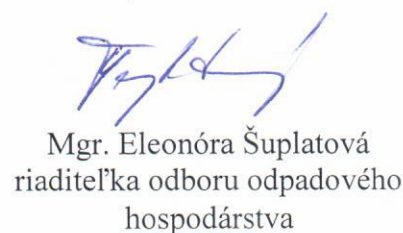 Mgr. Eleonóra Šuplatová
riaditeľka odboru odpadového
hospodárstva